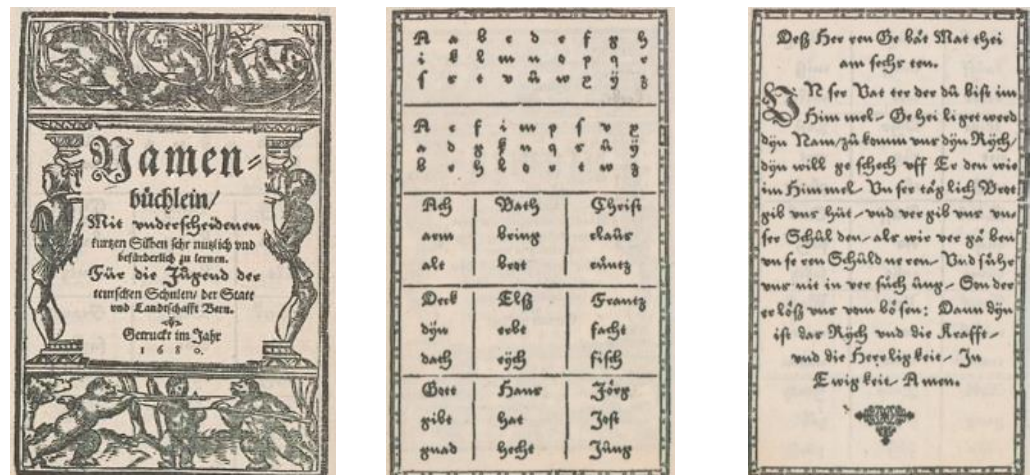 Namen-
büchlein/
Mit vnderscheidenen
kurtzen Silben sehr nutzlich vnd
befürderlich zu lernen.
Für die Jůgend der
teutschen Schulen/ der Statt
vnd Landtschafft Bern.
Getruckt im Jahr
1680.
A a b c d e f g h
i k l m n o p q r
ſ s t v ů w x ÿ z
A e f i m p ſ v x
a d g k n q s ů ÿ
b c h l o r t w z
Ach Bath Christ
arm bring claůs
alt brot cůntz
Deck Elß Frantz
dÿn erbt facht
dach eÿch fisch
Gott Hans Jörg
gibt hat Jost
gnad hecht Jůng
Deß Her ren Ge bät Mat thei
am sechs ten.
VN ser Vat ter der dů bist im
Him mel/ Ge hei li get werd
dÿn Nam/ zů komm vns dÿn Rÿch/
dÿn will ge schech vff Er den wie
im Him mel/ Vn ser täg lich Brot
gib vns hüt/ vnd ver gib vns vn/
ser Schůl den/ als wir ver gä ben
vn se ren Schůld ne ren/ Vnd führ
vns nit in ver sůch ůng/ Son der
er löß vns vom bö sen: Dann dÿn
ist das Rÿch vnd die Krafft/
vnd die Herr lig keit/ In
Ewig keit/ Amen.